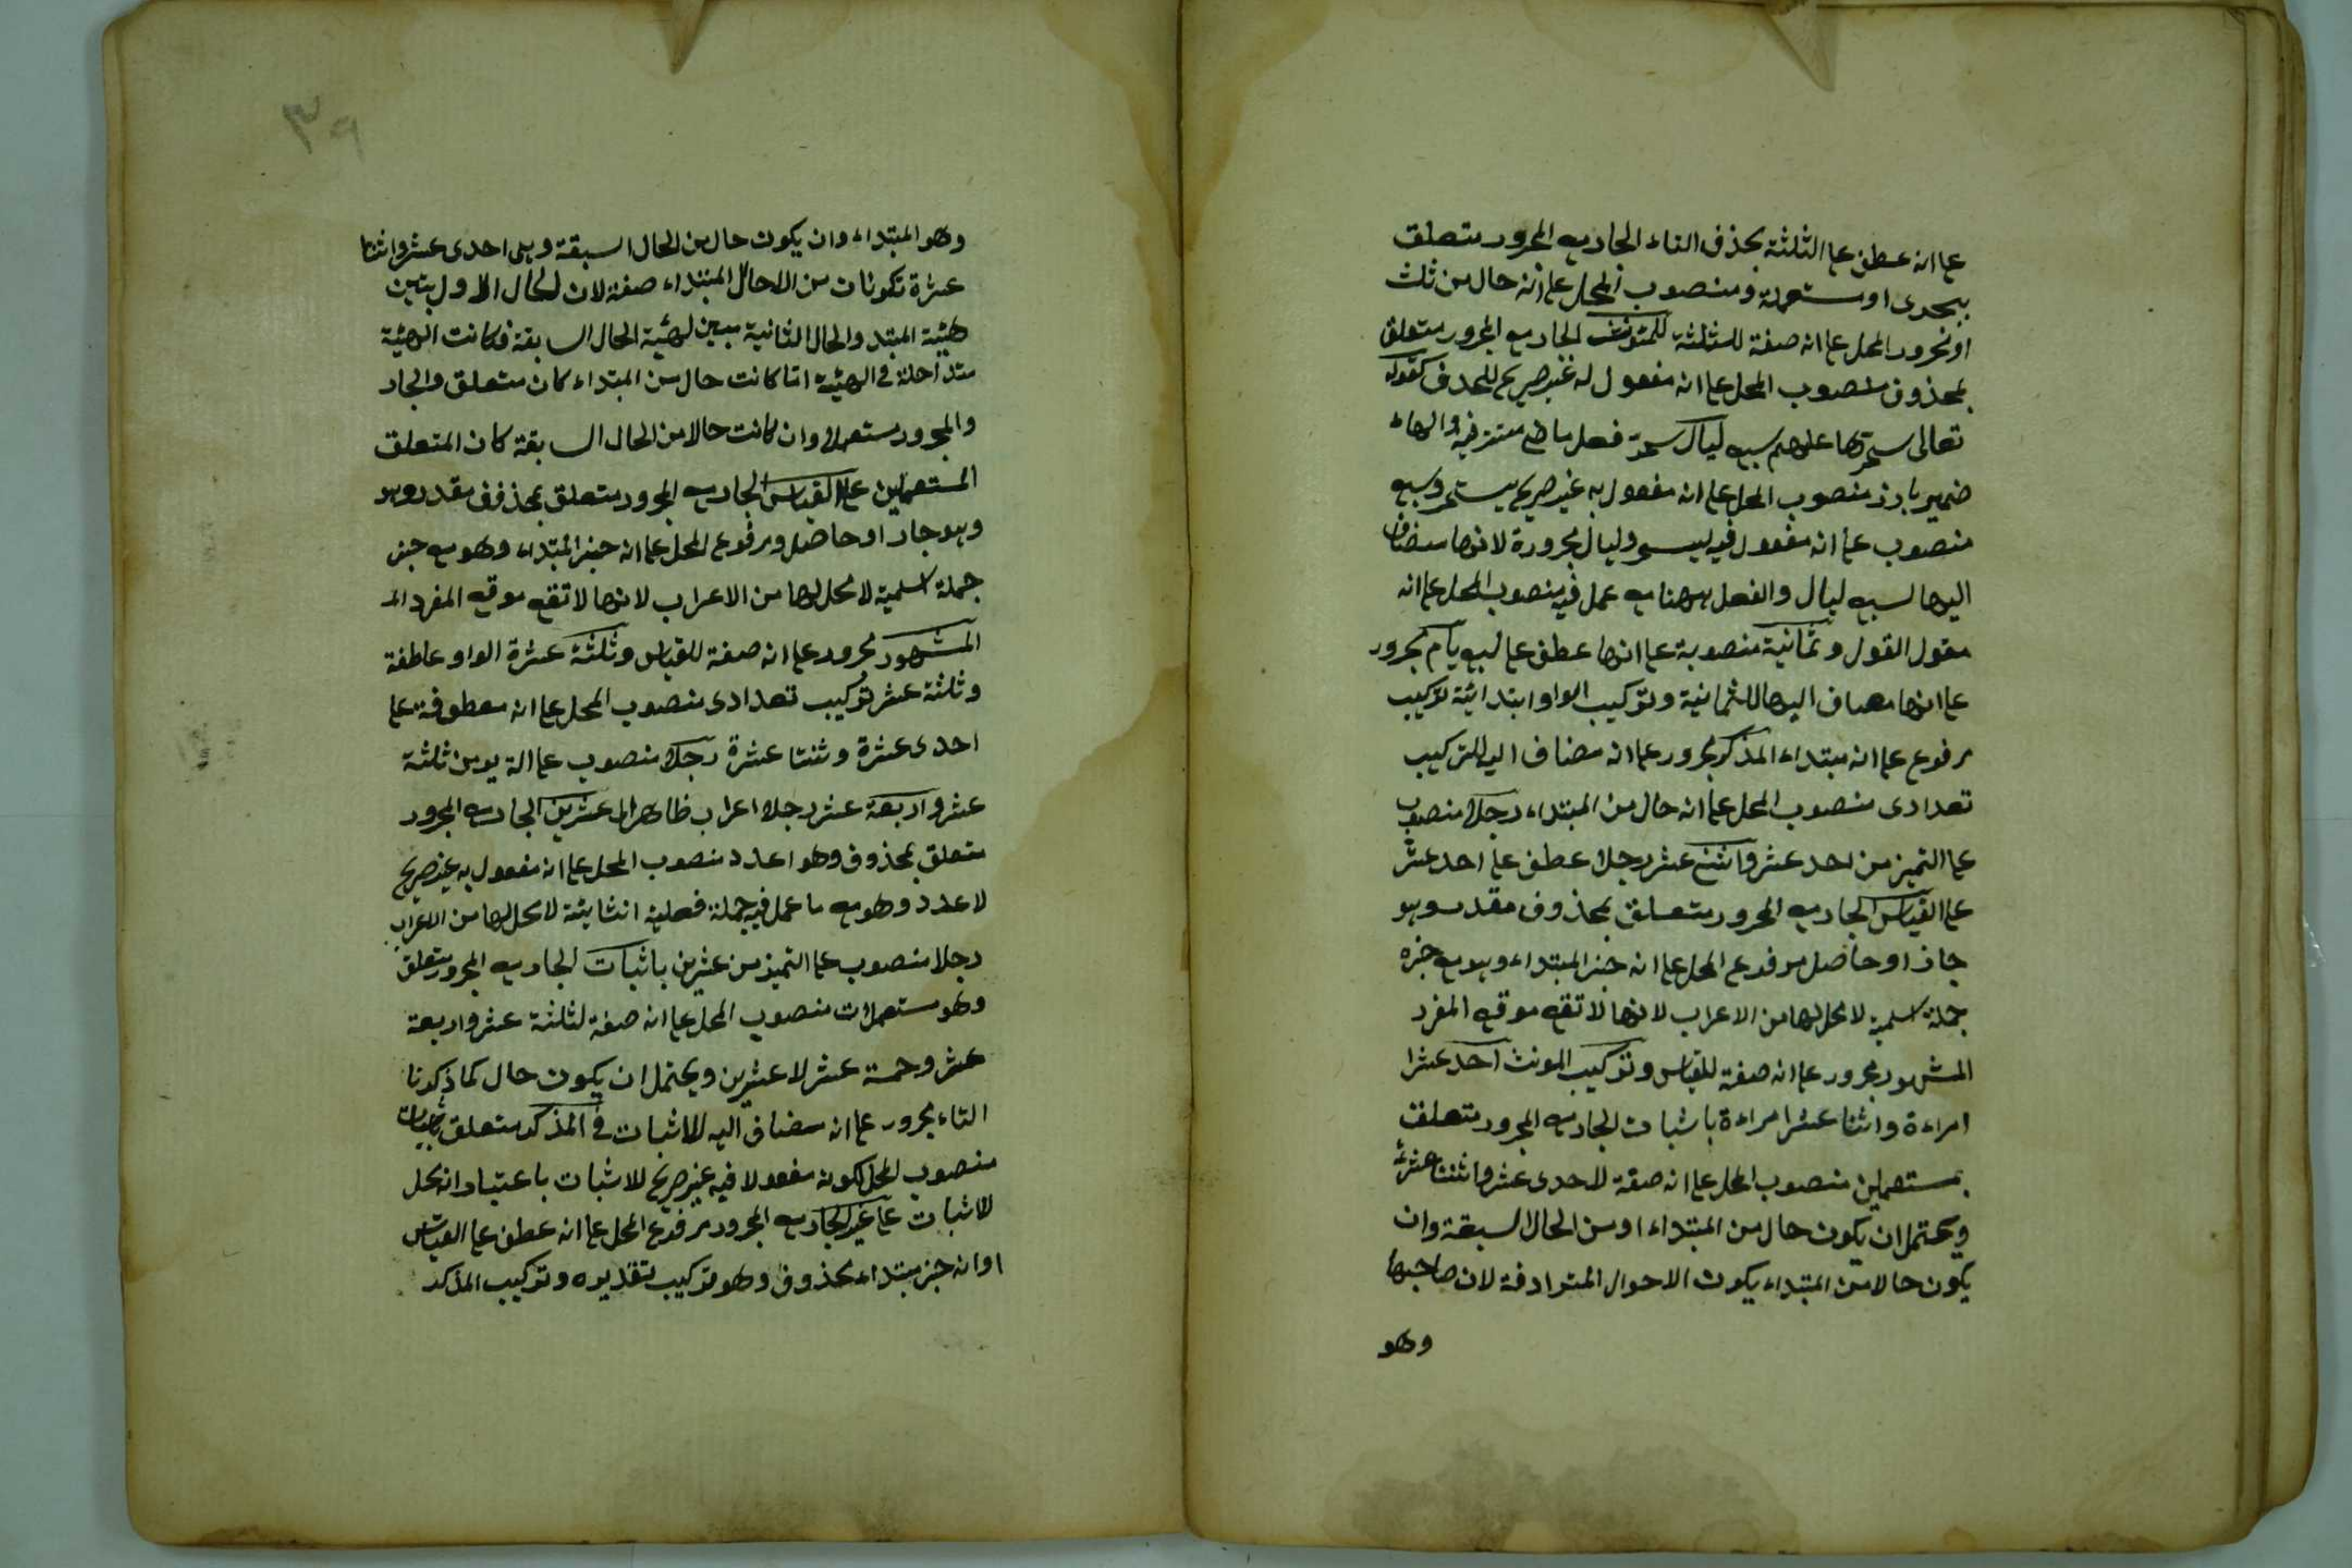 على انه عطف على الثلثة بحذف التاء الجار مع المجرور متعلق
بجرى او مستعملة ومنصوب المحل على انه حال من ثلث
او مجرور المحل على انه صفة للثلثة للمؤنث الجار مع المجرور متعلق
بمحذوف منصوب المحل على انه مفعول له غير صريح للحذف كقوله
تعالى سخرها عليهم سبع ليال سخر فعل ماض مستتر فيه والهاء
ضمير بارز منصوب المحل على انه مفعول به غير صريح لسخر وسبع
منصوب على انه مفعول فيه لسخر وليال مجرورة لانها مضاف
اليها لسبع ليال والفعل ههنا مع عمل فيه منصوب المحل على انه
مقول القول وثمانية منصوبة على انها عطف على سبع ايام مجرور
على انها مضاف اليها للثمانية وتركيب الواو ابتدائية تركيب
مرفوع على انه مبتداء المذكر مجرور على انه مضاف اليه للتركيب
تعدادى منصوب المحل على انه حال من المبتداء رجلا منصوب
على التميز من احد عشر واثنى عشر رجلا عطف على احد عشر
على القياس الجار مع المجرور متعلق بمحذوف مقدر وهو
جاز او حاصل مرفوع المحل على انه خبر المبتداء وهو مع خبره
جملة اسمية لا محل لها من الاعراب لانها لا تقع موقع المفرد
المشهور مجرور على انه صفة للقياس وتركيب المونث احد عشرا
امراءة واثنا عشرا امراءة باثبات الجار مع المجرور متعلق
بمستعملين منصوب المحل على انه صفة لاحدى عشر واثنتا عشرة
ويحتمل ان يكون حال من المبتداء او من الحال السبقة وان
يكون حالا من المبتداء يكون الاحوال المترادفة لان صاحبها
وهو
٣٩
وهو المبتداء وان يكون حال من الحال السبقة وهى احدى عشر واثنا
عشرة تكونان من الاحال المبتداء صفة لان الحال الاول يبين
هيئة المبتدء والحال الثانية يبين لهيئة الحال السابقة فكانت الهيئة
متداخلة فى الهيئة اذا كانت حال من المبتداء كان متعلق والجار
والمجرور مستعملا وان كانت حالا من الحال السابقة كان المتعلق
المستعملين على القياس الجار مع المجرور متعلق بمحذوف مقدر وهو
وهو جار او حاصل ومرفوع المحل على انه خبر المبتداء وهو مع خبر
جملة اسمية لا محل لها من الاعراب لانها لا تقع موقع المفرد
المشهور مجرور على انه صفة للقياس وثلثة عشرة الواو عاطفة
وثلثة عشر تركيب تعدادى منصوب المحل على انه معطوفة على
احدى عشرة وثنتا عشرة رجلا منصوب على من ثلثة
عشر واربعة عشر رجلا اعراب ظاهر الى عشرين الجار مع المجرور
متعلق بمحذوف وهو اعدد منصوب المحل على انه مفعول به غير صريح
لاعدد وهو مع ما عمل فيه جملة فعلية انشائية لا محل لها من الاعراب
رجلا منصوب على التميز من عشرين باثبات الجار مع المجرور متعلق
وهو مستعملات منصوب المحل على انه صفة لثلثة عشر واربعة
عشر وخمسة عشر لا عشرين ويحتمل ان يكون حال كما ذكرنا
التاء مجرور على انه مضاف اليه للاثبات فى المذكر متعلق باثبات
منصوب المحل لكونه مفعولا فيه غير صريح للاثبات باعتبار انه محل
للاثبات على غير الجار مع المجرور مرفوع المحل على انه عطف على القياس
او انه خبر مبتداء محذوف وهو تركيب تقديره وتركيب المذكر